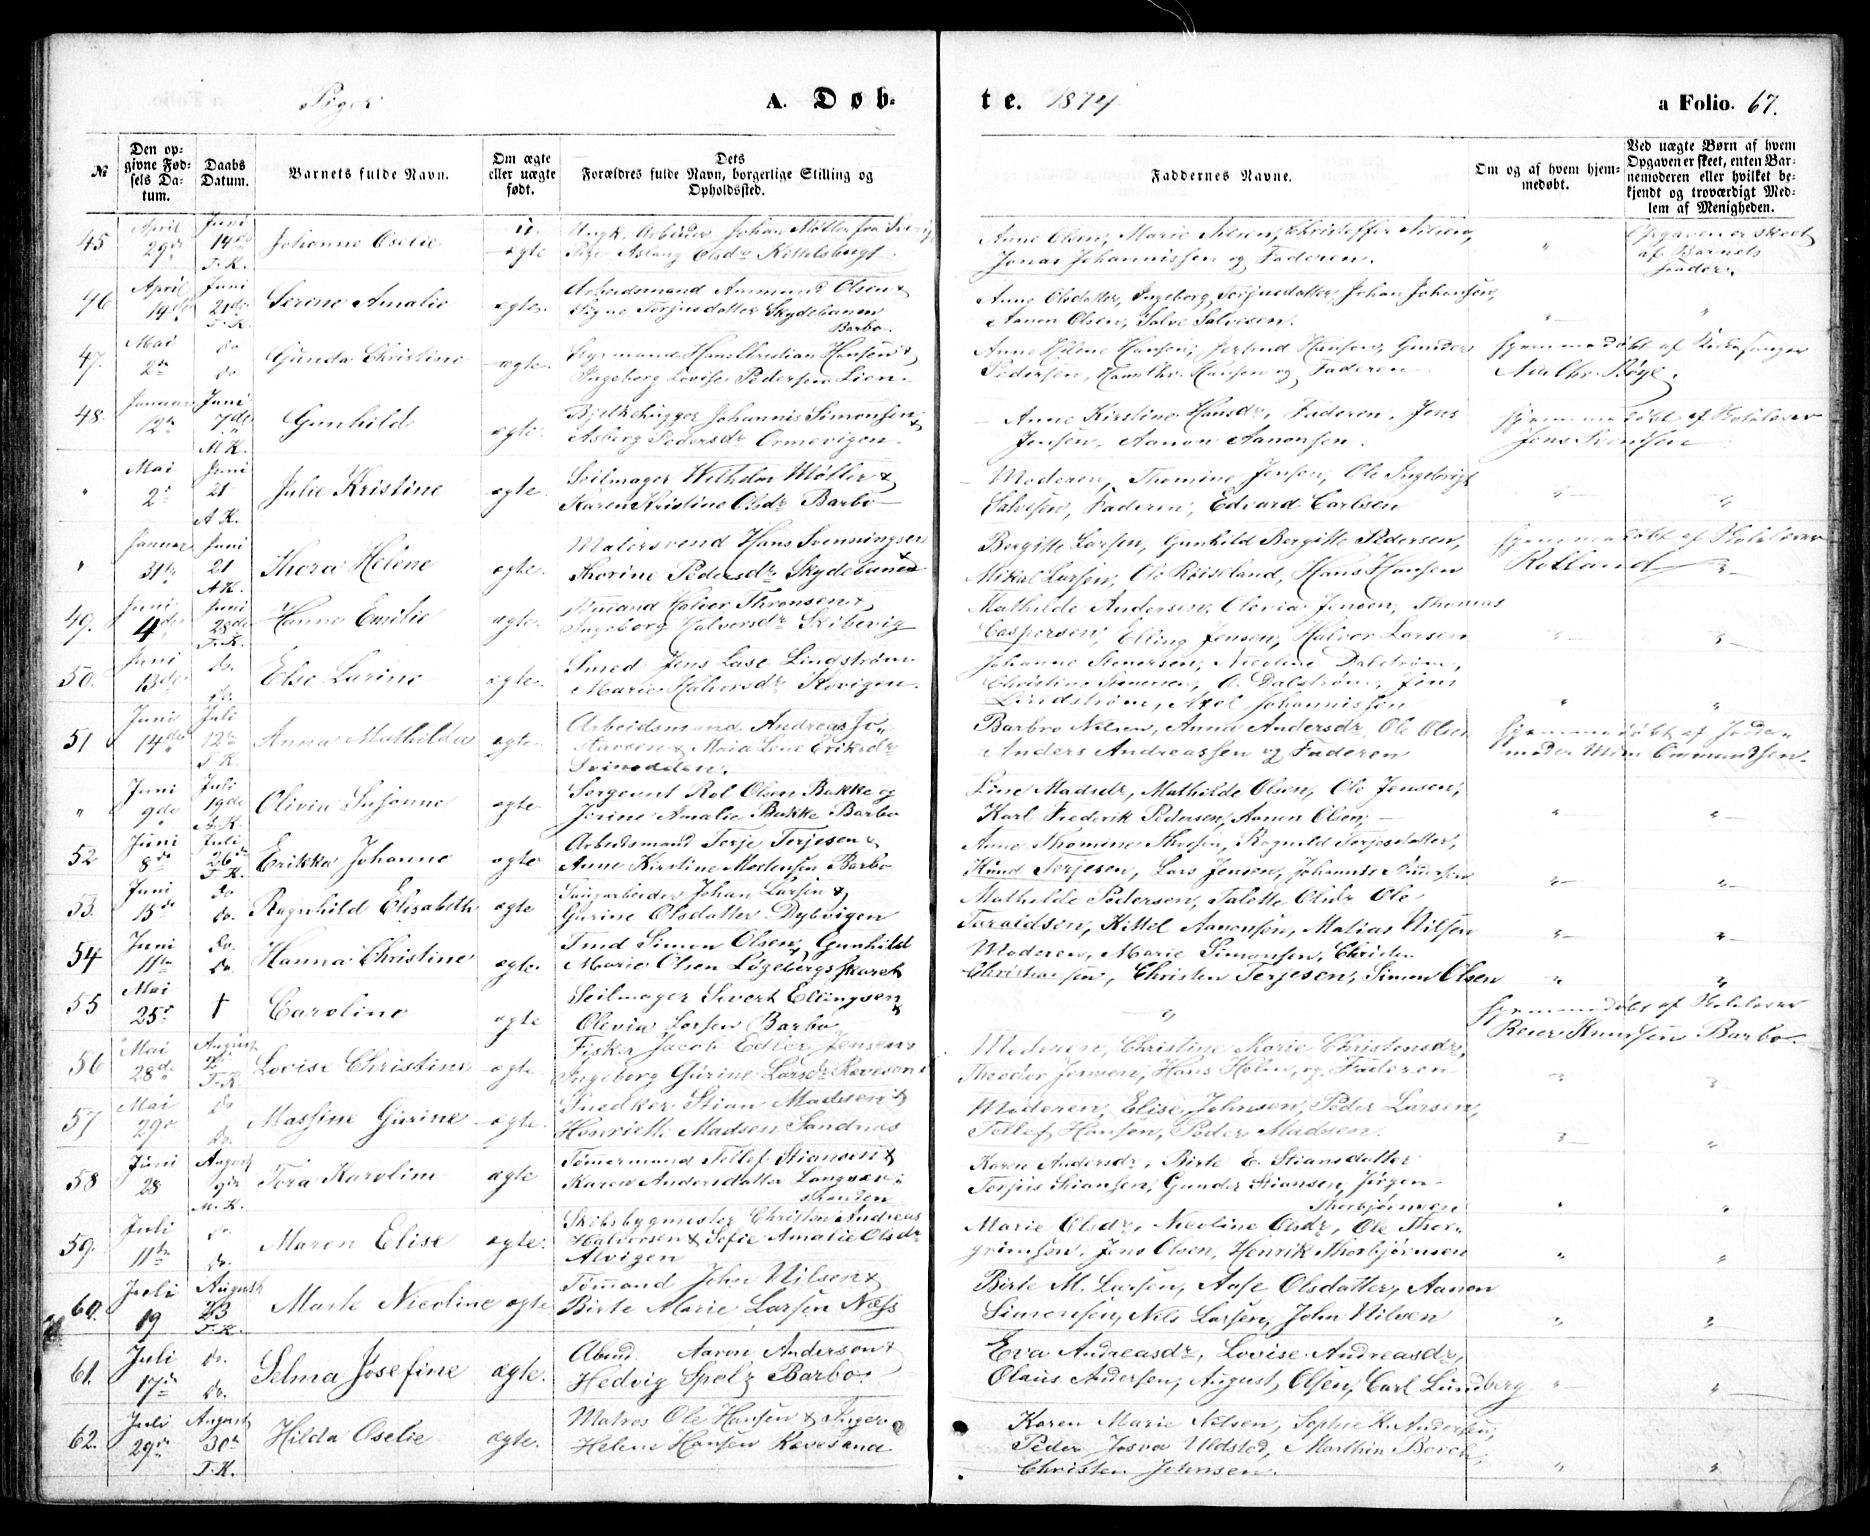 Piger A. Døb-
te. 1874 a Folio. 67.
№
Den op-
givne Fød-
sels Da-
tum.
Daabs
Datum.
Barnets fulde Navn.
Om ægte
eller uægte
født.
Dets
Forældres fulde Navn, borgerlige Stilling og
Opholdssted.
Faddernes Navne.
Om og af hvem hjem-
medøbt.
Ved uægte Børn af hvem
Opgaven er skeet, enten Bar-
nemoderen eller hvilket be-
kjendt og troværdigt Med-
lem af Menigheden.
45 April 29de Juni 14de T.K. Johanne Oselie u ægte
Ungk. Arbeider Johan Møller fra
Pige Aslaug Olsdr Kittelsbugt
Anne Olsen, Marie Nilsen, Christoffer Nilsen,
Jonas Johannissen og Faderen. "
Opgaven er skeet
af Barnets
Fader.
46 April 14de Juni 21de T.K. Serine Amalie ægte.
Arbeidsmand Ammund Olsen &
Signe Terjusdatter Skydebanen
Barbo.
Anne Olsdatter, Ingeborg Terjusdatter, Johan Johansen,
Aanon Olsen, Salve Salvesen. " "
47. Mai 2de do do Gunda Christine ægte.
Hans Christian Hansen &
Ingeborg Lovise Pedersen Lien.
Anne Helene Hansen, Jertrud Hansen, Gunder
Pedersen, Hans Chr. Hansen og Faderen
Hjemmedøbt af Kirkesanger
Bøye.
48. Januar 12te Juni 7de M.K. Gunhild ægte.
Bjelkehugger Johannis Simonsen &
Asberg Pedersdr Ormevigen.
Anne Kirstine Hansdr, Faderen, Jens
Jensen, Aanon Aanonsen.
Hjemmedøbt af Skolelærer
Jens Svendsen
" Mai 2de Juni 21 A.K. Julie Kristine ægte.
Seilmager Wilhelm Møller &
Karen Kristine Olsdr Barbo
Moderen, Thomine Jensen, Ole Ingebrigt
Salvesen, Faderen, Edvard Carlsen " "
" Januar 31te Juni 21 A.K. Thora Helene ægte.
Malersvend Hans Svenningsen &
Thorine Pedersdr Skydebanen
Bergitte Larsen, Gunhild Bergitte Pedersen,
Mikal Larsen, Ole Røiseland, Hans Hansen
Hjemmedøbt af Skolelærer
Rolland "
49. Juni 4de Juni 28de T.K. Hanne Emilie ægte.
Halvor Thronsen &
Ingeborg Halvorsdr Skibevig
Mathilde Andersen, Olevia Jensen, Thomas
Caspersen, Elling Jensen, Halvor Larsen " "
50. Juni 13de do. do. Else Larine ægte.
Smed Jens Lase Lindstrøm
Marie Halvorsdr Kovigen.
Johanne Stenersen, Nicoline Dalstrøm,
Christine Stenersen, O. Dalstrøm, Jens
Lindstrøm, Axel Johannissen " "
51 Juni 14de Juli 12te T.K. Anna Mathilda ægte.
Arbeidsmand Andreas Jo-
hansen & Maia Lene Eriksdr
Svinodden.
Barbro Nilsen, Anna Andersdr, Ole Olsen
Anders Andreassen og Faderen
Hjemmedøbt af Jorde-
moder Mina Omundsen.
" Juni 9de Juli 19de A.K. Olivia Susanne ægte
Sergeant Rol Olsen Bakke og
Jorine Amalie Bakke Barbo
Line Madsdr, Mathilde Olsen, Ole Jensen,
Karl Frederik Pedersen, Aanon Olsen, " "
52 Juni 8de Juli 26de T.K. Erikka Johanne ægte
Arbeidsmand Terje Terjesen &
Anne Kirstine Mortensen Barbo
Anne Thomine Thoesen, Ragnild Terjesdatter,
Knud Terjesen, Lars Jensen, Johannes Andersen " "
53. Juni 15de do. do. Ragnhild Elisabeth ægte
Saugarbeider Johan Larsen &
Gurine Olsdatter Dybvigen
Mathilde Pedersen, Talette Olsdr, Ole
Taraldsen, Kittel Aanonsen, Matias Nilsen " "
54 Juni 11te do. do. Hanna Christine ægte.
Simon Olsen & Gunhild
Marie Olsen Løgebergsskaret
Moderen, Marie Simonsen, Christen
Christiansen, Christen Terjesen, Simon Olsen " "
55 Mai 25de † Caroline ægte
Seilmager Sivert Ellingsen &
Olivia Larsen Barbo
"
Hjemmedøbt af Skolelærer
Reier Knudsen Barbo.
56 Mai 28de August 2de T.K. Lovise Christine ægte
Fisker Jacob Edler Jensen &
Ingeborg Gurine Larsdr Revesand
Moderen, Christine Marie Christensdr,
Theodor Jensen, Hans Holm og Faderen " "
57 Mai 29de do do. Massine Gurine ægte.
Snedker Stian Madsen &
Henriette Madsen Sandnæs
Moderen, Elise Johnsen, Peder Larsen,
Tellef Hansen, Peder Madsen. " "
58 Juni 28 August 9de M.K. Tora Karoline ægte
Tømmermand Tellef Stiansen &
Karen Andersdatter Langsæv-
stranden
Karen Andersdr, Birte E. Stiansdatter
Terjus Stiansen, Gunder Stiansen, Jørgen
Thorbjørnsen " "
59. Juli 11te do. do. Maren Elise ægte.
Skibsbygmester Christen Andreas
Halvorsen & Sofie Amalie Olsdr
Alvigen
Marie Olsdr, Nicoline Olsdr, Ole Thor-
grimsen, Jens Olsen, Henrik Thorbjørnsen " "
60. Juli 19 August 23 T.K. Marte Nicoline ægte
Tømmand John Nilsen &
Birte Marie Larsen Næss
Birte M. Larsen, Aase Olsdatter, Aanon
Simonsen, Nils Larsen, John Nilsen " "
61. Juli 17de do. do. Selma Josefine ægte.
Abmd. Aaron Anderson &
Hedvig Spetz Barbo.
Eva Andreasdr, Lovise Andreasdr,
Olaus Andersen, August Olsen, Carl Lundberg " "
62. Juli 29de August 30te T.K. Hilda Oselie ægte.
Matros Ole Hansen & Inger
Helene Hansen Revesand
Karen Marie Nilsen, Sophie K. Andersen,
Peder Josva Uldsted, Marthin Borch,
Christen Johnsen. " "